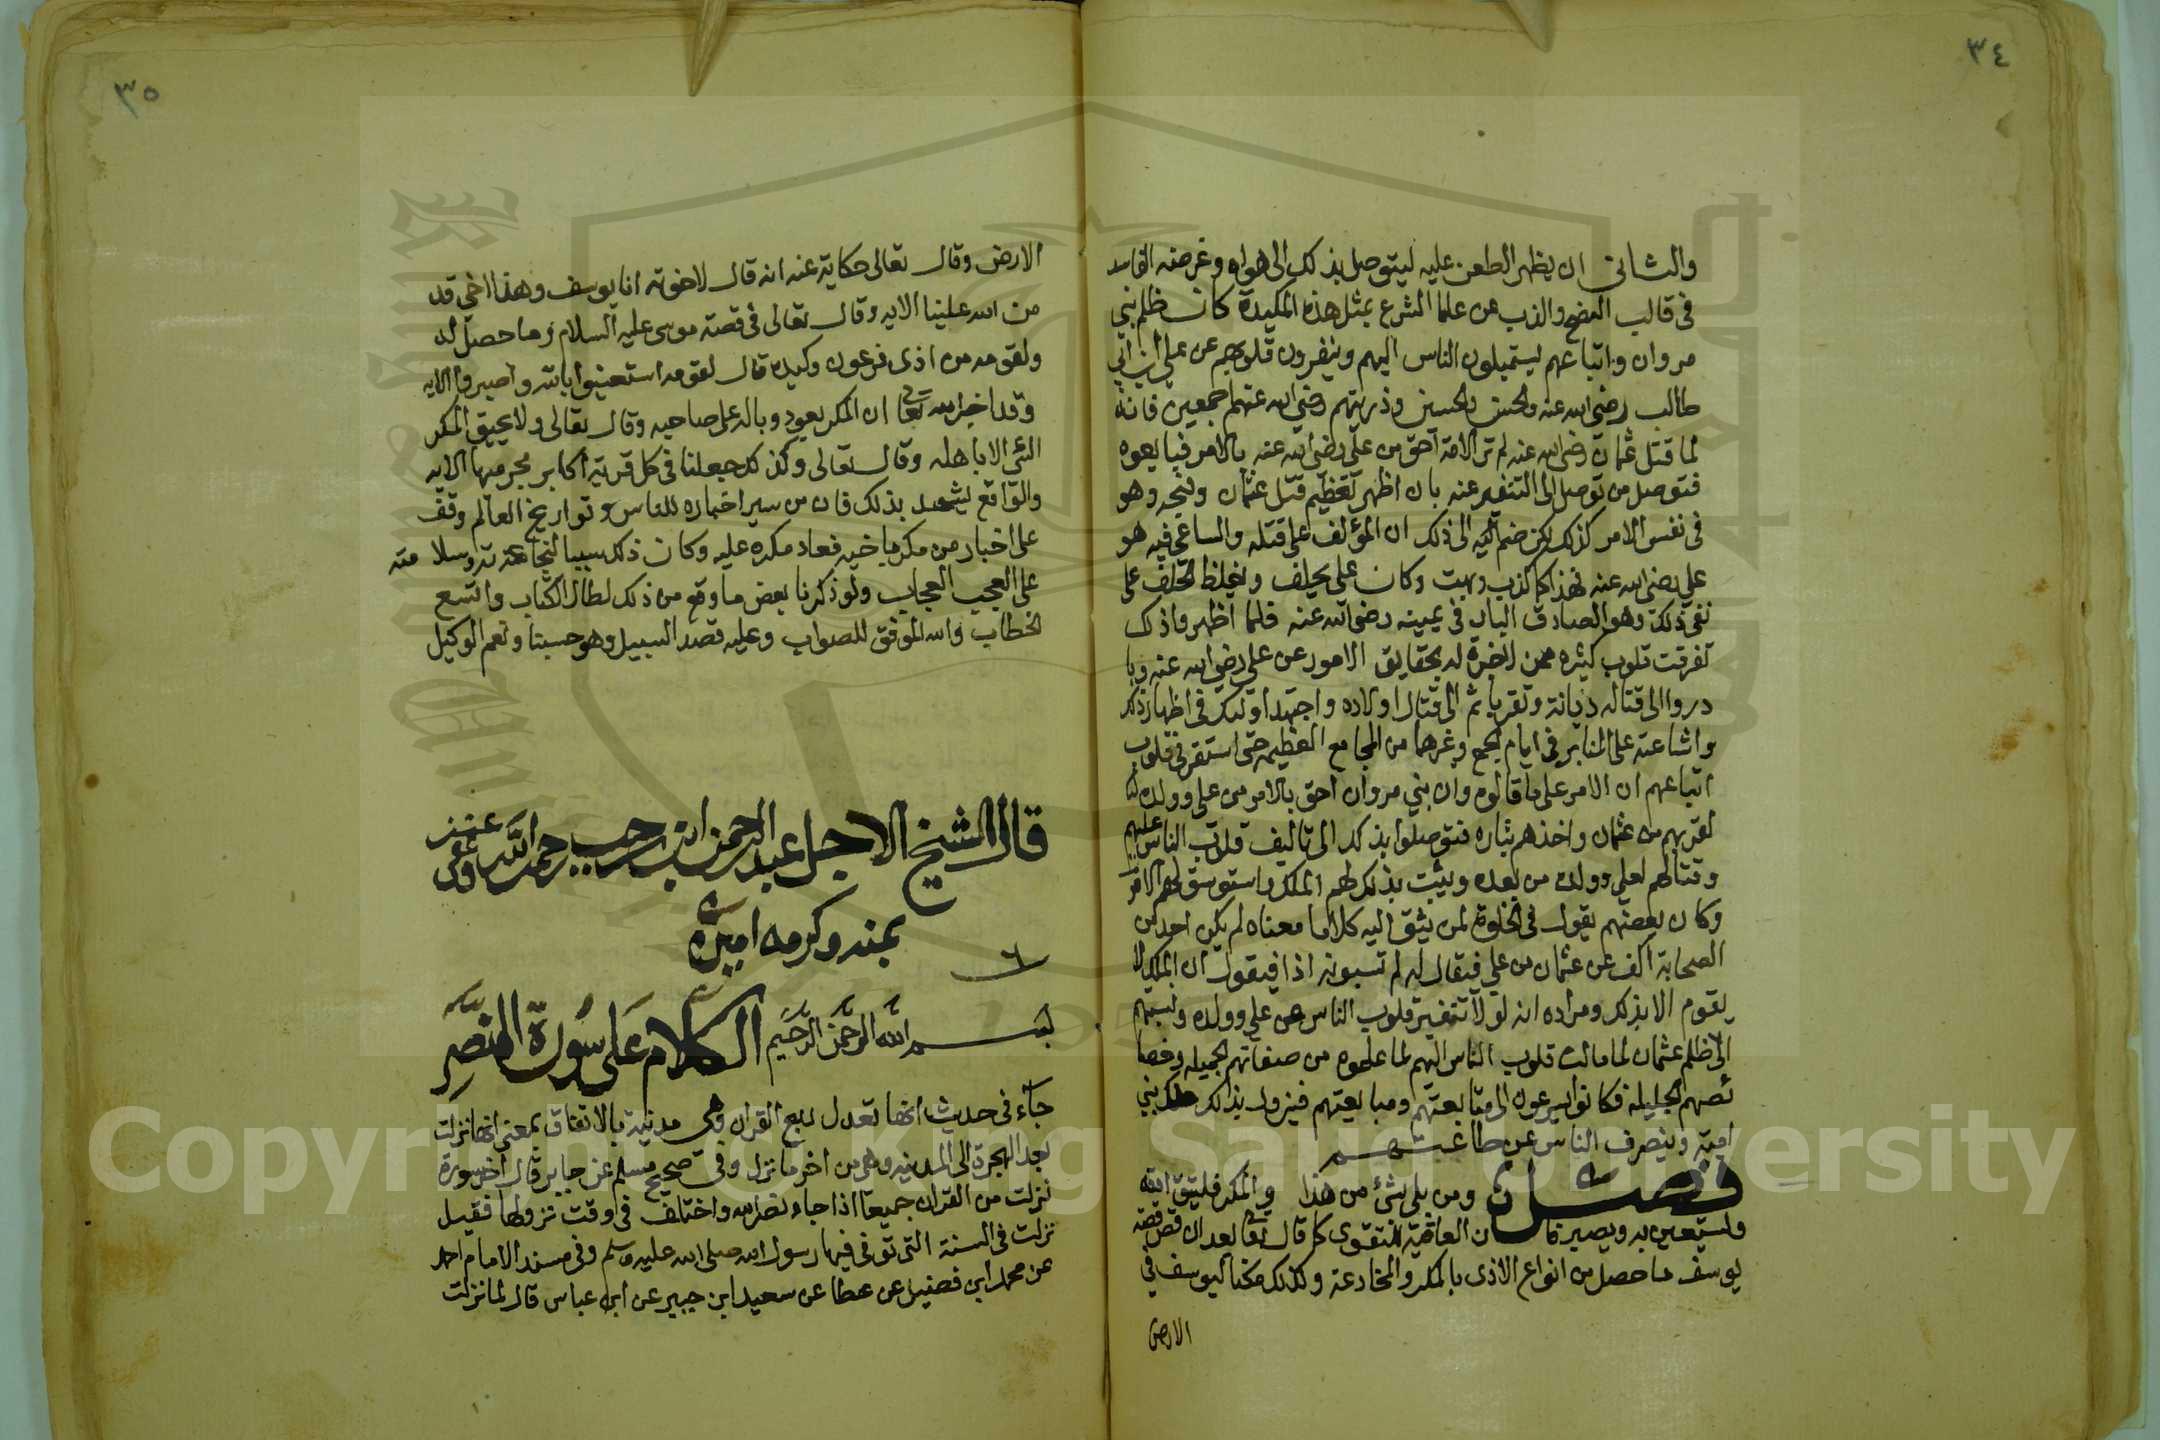 ٣٤
والثاني ان يظهر الطعن عليه ليتوصل بذلك الى هواه وغرضه الفاسد
في قالب النصح والذب عن علما الشرع بمثل هذه المكيدة كان ظلم بني
مروان واتباعهم يستميلون الناس اليهم وينفرون قلوبهم عن علي ابن ابي
طالب رضي الله عنه والحسن والحسين وذريتهم رضي الله عنهم اجمعين فانه
لما قتل عثمان رضي الله عنه لم تر الامة احق من علي رضي الله عنه بالامر فبايعوه
فتوصل من توصل الى التنفير عنه بان اظهر تعظيم قتل عثمان وقبحه وهو
في نفس الامر كذلك لكن ضم اليه الى ذلك ان المؤلف على قتله والساعي فيه هو
علي رضي الله عنه فهذا كله كذب وبهت وكان علي يحلف ويغلظ الحلف على
نفي ذلك وهو الصادق البار في يمينه رضي الله عنه فلما اظهروا ذلك
تفرقت قلوب كثيره ممن لا خبرة له بحقايق الامور عن علي رضي الله عنه وبا
دروا الى قتاله ديانة وتقربا ثم الى قتال اولاده واجتهد اوليك في اظهار ذلك
واشاعته على المنابر في ايام الجمع وغيرها من المجامع العظيمه حتى استقر في قلوب
اتباعهم ان الامر على ما قالوه وان بني مروان احق بالامر من علي وولده
لقربهم من عثمان واخذهم بثاره فتوصلوا بذلك الى تاليف قلوب الناس عليهم
وقتالهم لعلي وولده من بعده ويثبت بذلك لهم الملك واستوسق لهم الامر
وكان بعضهم يقول في الخلوة لمن يثق اليه كلاما معناه لم يكن احد من
الصحابة اكف عن عثمان من علي فيقال له لم تسبونه اذا فيقول ان الملك لا
يقوم الا بذلك ومراده انه لولا تنفير قلوب الناس عن علي وولده ونسبتهم
الى ظلم عثمان لما مالت قلوب الناس اليهم لما علموه من صفاتهم الجميله وخصا
ئصهم الجليله فكانوا يسرعون الى متابعتهم ومبايعتهم فيزول بذالك ملك بني
امية وينصرف الناس عن طاعتهم
فصل ومن بلي بشئ من هذا والمكر فليتق الله
وليستعين به ويصبر فان العاقبة للتقوى كما قال تعالى بعد ان قص قصة
يوسف ما حصل من انواع الاذى بالمكر والمخادعة وكذلك مكنا ليوسف في
الارض
٣٥
الارض وقال تعالى حكاية عنه انه قال لاخوته انا يوسف وهذا اخي قد
من الله علينا الايه وقال تعالى في قصة موسى عليه السلام وما حصل له
ولقومه من اذى فرعون وكيده قال لقومه استعينوا بالله واصبروا الايه
وقد اخبر الله تعالى ان المكر يعود وباله على صاحبه وقال تعالى ولا يحيق المكر
السئ الا باهله وقال تعالى وكذلك جعلنا في كل قرية اكابر مجرميها الايه
والواقع يشهد بذلك فان من سبر اخبار للناس وتواريخ العالم وقف
على اخبار من مكر باخيه فعاد مكره عليه وكان ذلك سببا لنجاته وسلامته
على العجب العجاب ولو ذكرنا بعض ما وقع من ذلك لطال الكتاب واتسع
الخطاب والله الموفق للصواب وعليه قصد السبيل وهو حسبنا ونعم الوكيل
قال الشيخ الاجل عبد الرحمن ابن رجب رحمه الله وعفى عنه
بمنه وكرمه امين
٦
بسم الله الرحمن الرحيم الكلام على سورة النصر
جاء في حديث انها تعدل ربع القران وهي مدنية بالاتفاق بمعنى انها نزلت
بعد الهجرة الى المدينه وهي من اخر ما نزل وفي صحيح مسلم عن جابر قال اخر سورة
نزلت من القران جميعا اذا جاء نصر الله واختلف في وقت نزولها فقيل
نزلت في السنة التي توفي فيها رسول الله صلى الله عليه وسلم وفي مسند الامام احمد
عن محمد ابن فضيل عن عطا عن سعيد ابن جبير عن ابن عباس قال لما نزلت
Copyright © King Saud University
King Saud University
1957